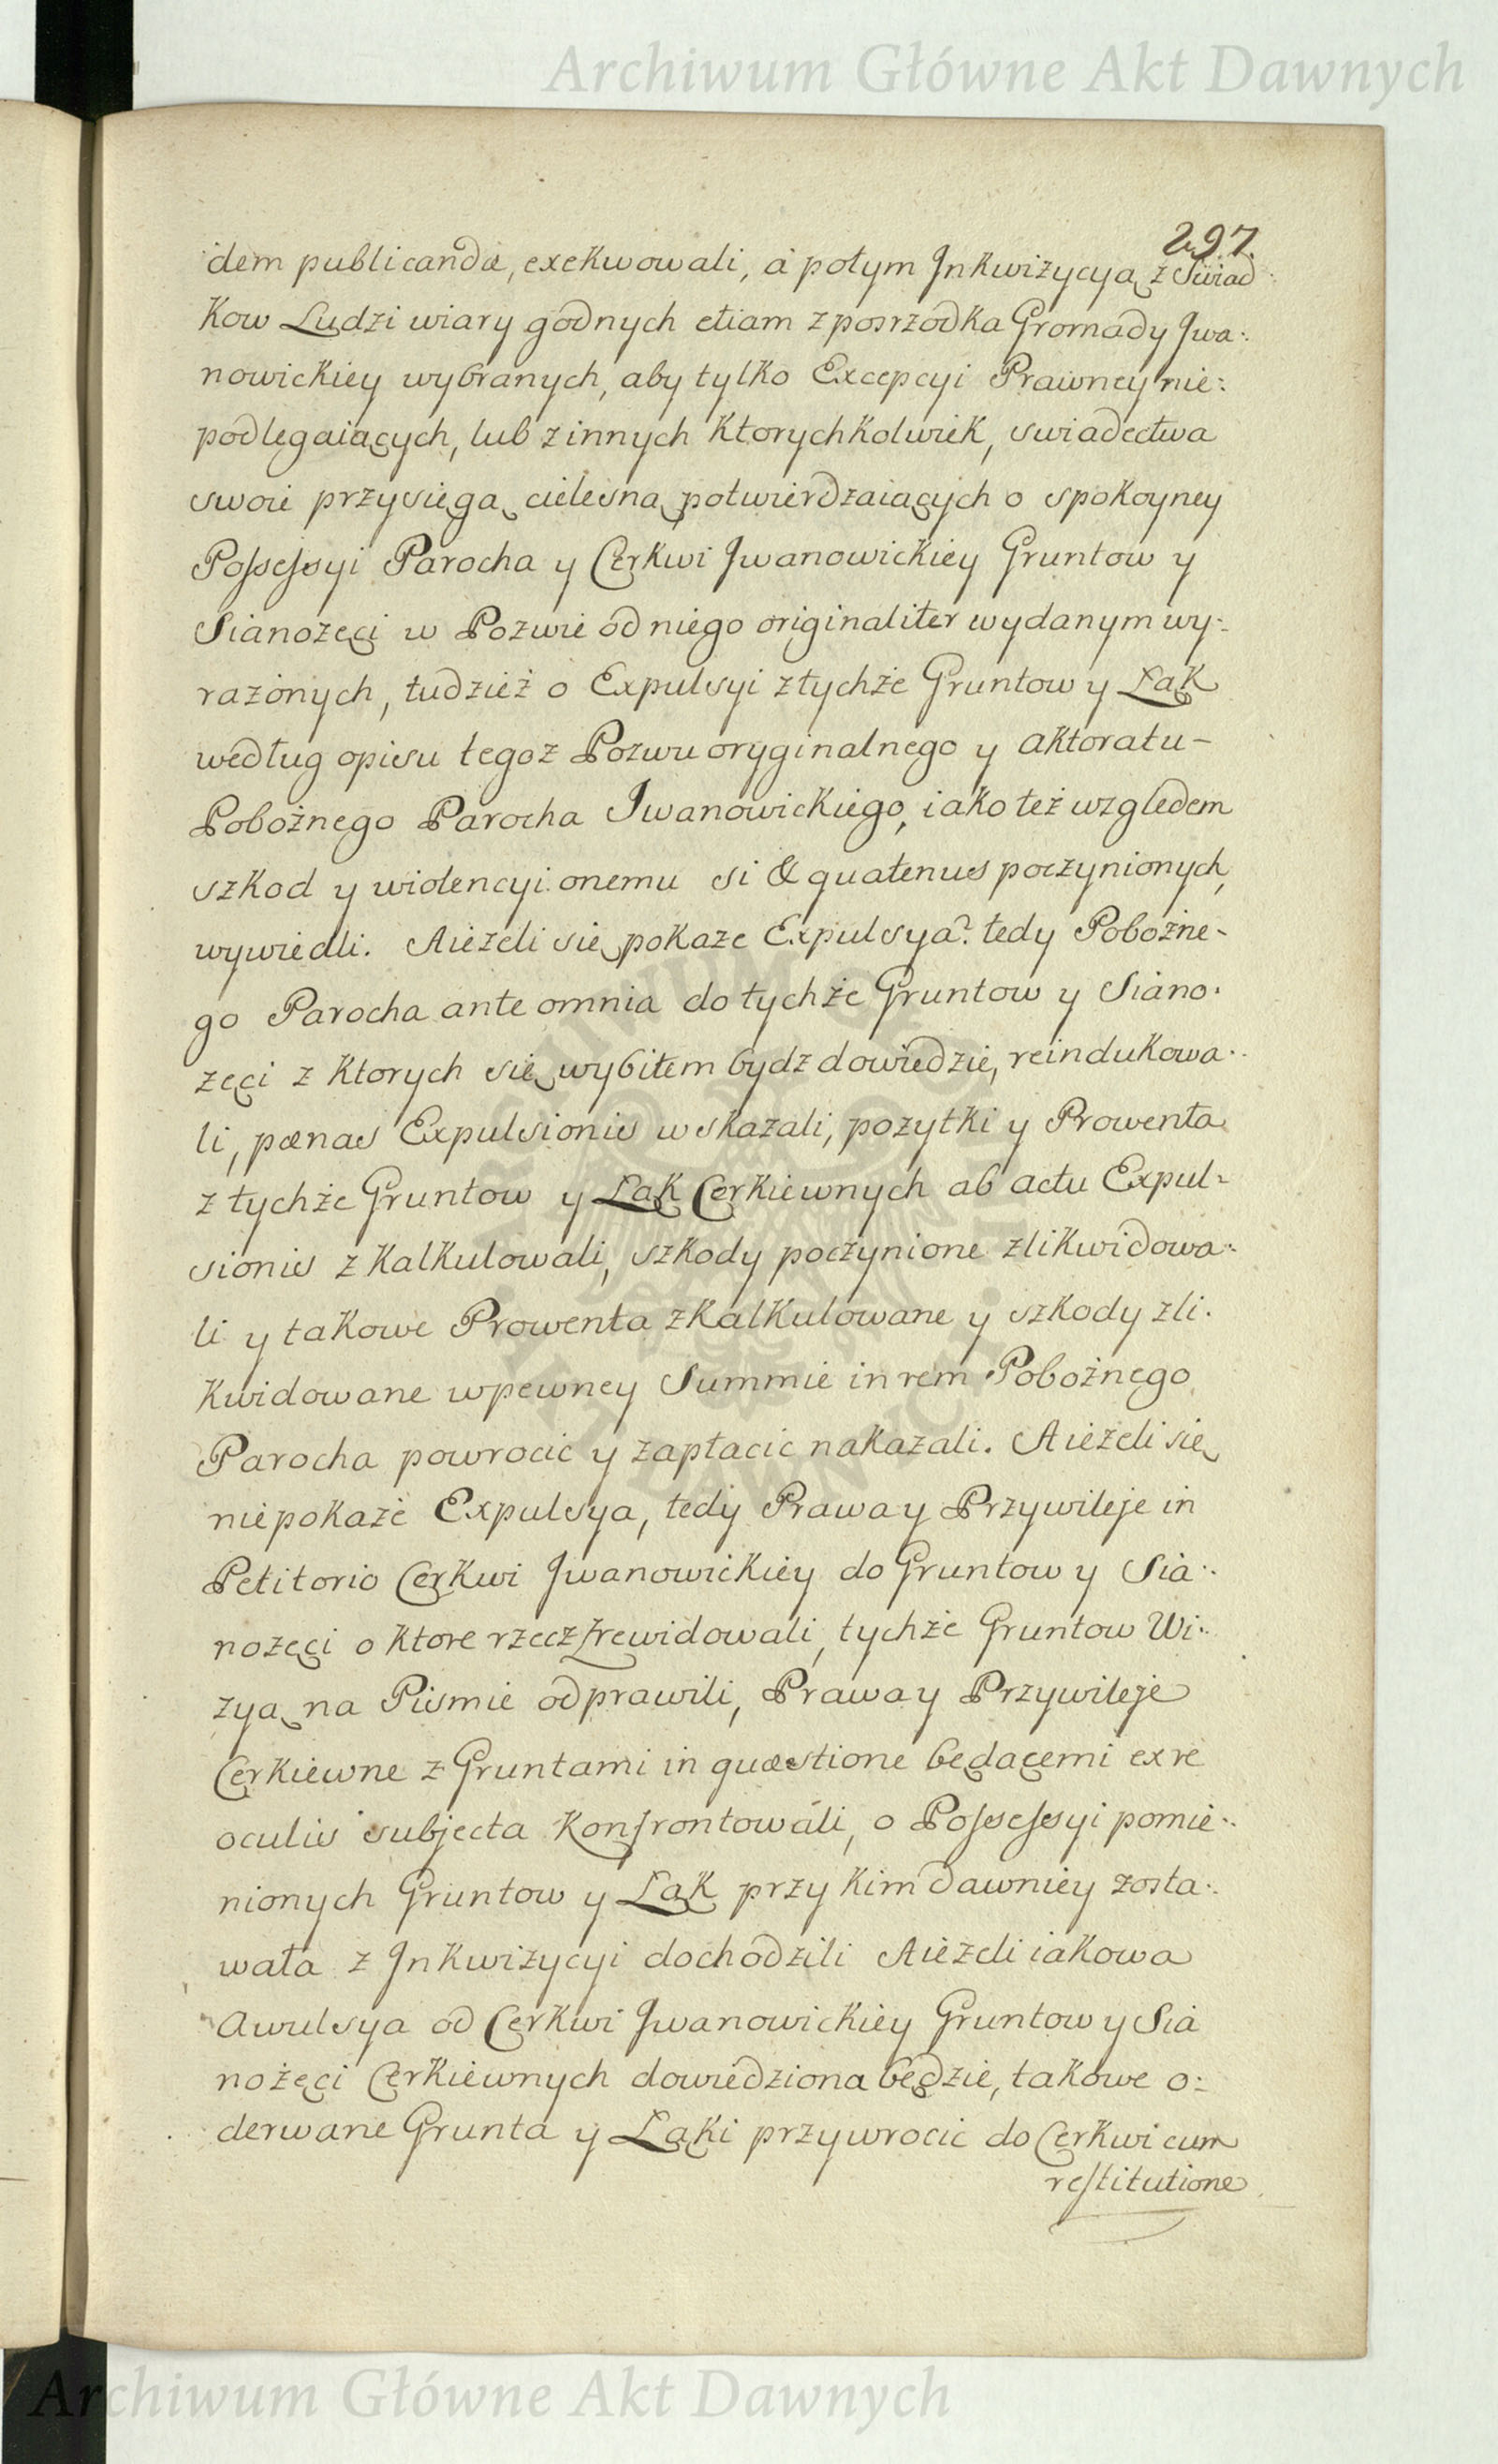 Archiwum Główne Akt Dawnych
297.
dem publicandæ, exekwowali, á potym Jnkwizycyą z Swiad:
kow Ludzi wiary godnych etiam z posrzodka Gromady Jwa:
nowickiey wybranych, aby tylko Excepcyi Prawney nie:
podlegaiących, lub z innych ktorychkolwiek, swiadectwa
swoie przysięgą cielesną potwierdzaiących o spokoyney
Possessyi Parocha y Cerkwi Jwanowickiey Gruntow y
Sianożęci w Pozwie od niego originaliter wydanym wy:
rażonych, tudzież o Expulsyi z tychże Gruntow y Łąk
według opisu tegoż Pozwu oryginalnego y aktoratu
Pobożnego Parocha Jwanowickiego, iako też względem
szkod y wiolencyi onemu si & quatenus poczynionych,
wywiedli. Aieżeli się pokaże Expulsya? tedy Pobożne-
go Parocha ante omnia do tychże Gruntow y Siano:
żęci z ktorych się wybitem bydz dowiedzie, reindukowa:
li, pœnas Expulsionis wskazali, pożytki y Prowenta
z tychże Gruntow y Łąk Cerkiewnych ab actu Expul-
sionis zkalkulowali, szkody poczynione zlikwidowa:
li y takowe Prowenta zkalkulowane y szkody zli:
kwidowane w pewney Summie in rem Pobożnego
Parocha powrocic y zapłacic nakazali. Aieżeli się
niepokaże Expulsya, tedy Prawa y Przywileje in
Petitorio Cerkwi Jwanowickiey do Gruntow y Sia:
nożęci o ktore rzecz zrewidowali, tychże Gruntow Wi:
zyą na Pismie odprawili, Prawa y Przywileje
Cerkiewne z Gruntami in quæstione będącemi ex re
oculis subjecta konfrontowali, o Possessyi pomie:
nionych Gruntow y Łąk przy kim dawniey zosta:
wała z Jnkwizycyi dochodzili Aieżeli iakowa
Awulsya od Cerkwi Jwanowickiey Gruntow y Sia
nożęci Cerkiewnych dowiedziona będzie, takowe o:
derwane Grunta y Łąki przywrocic do Cerkwi cum
restitutione
Archiwum Główne Akt Dawnych